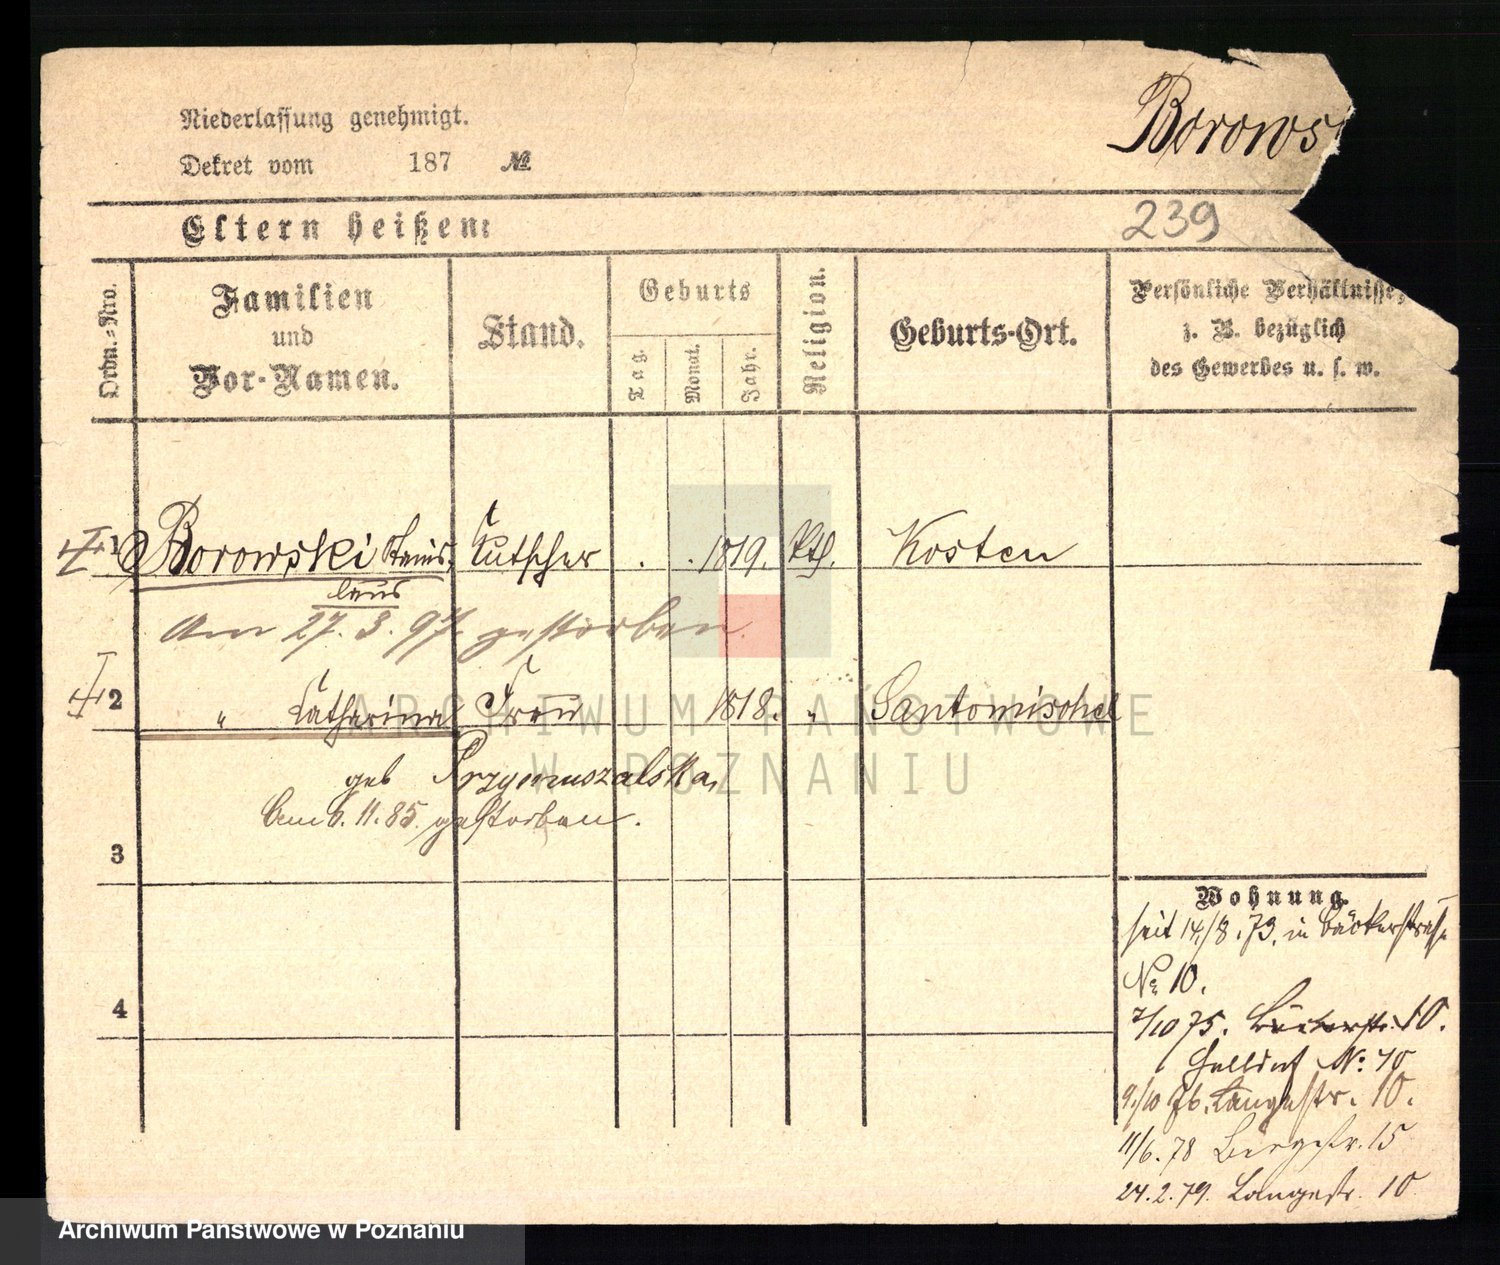 Niederlassung genehmigt.
Borows
Dekret vom 187 №
Eltern heißen:
239
Ordn.-Nro.
Familien und Vor-Namen.
Stand.
Geburts
Tag.
Monat.
Jahr.
Religion.
Geburts-Ort.
Persönliche Verhältnisse,
z. B. bezüglich
des Gewerbes u. s. w.
1 Borowski Stanis- Kutscher . . 1819. kth. Kosten
laus
Am 27. 3. 97. gestorben.
2 " Catharina Frau 1818. " Santomischel
geb
Am 6. 11. 85. gestorben.
3
4
Wohnung.
seit 14/8. 73. in Bäckerstraße
No 10.
2/10 75. 10.
No: 10
9/10 76. Langestr. 10.
11/6. 78 15
24. 2. 79. Langestr. 10
ARCHIWUM PAŃSTWOWE
W POZNANIU
Archiwum Państwowe w Poznaniu